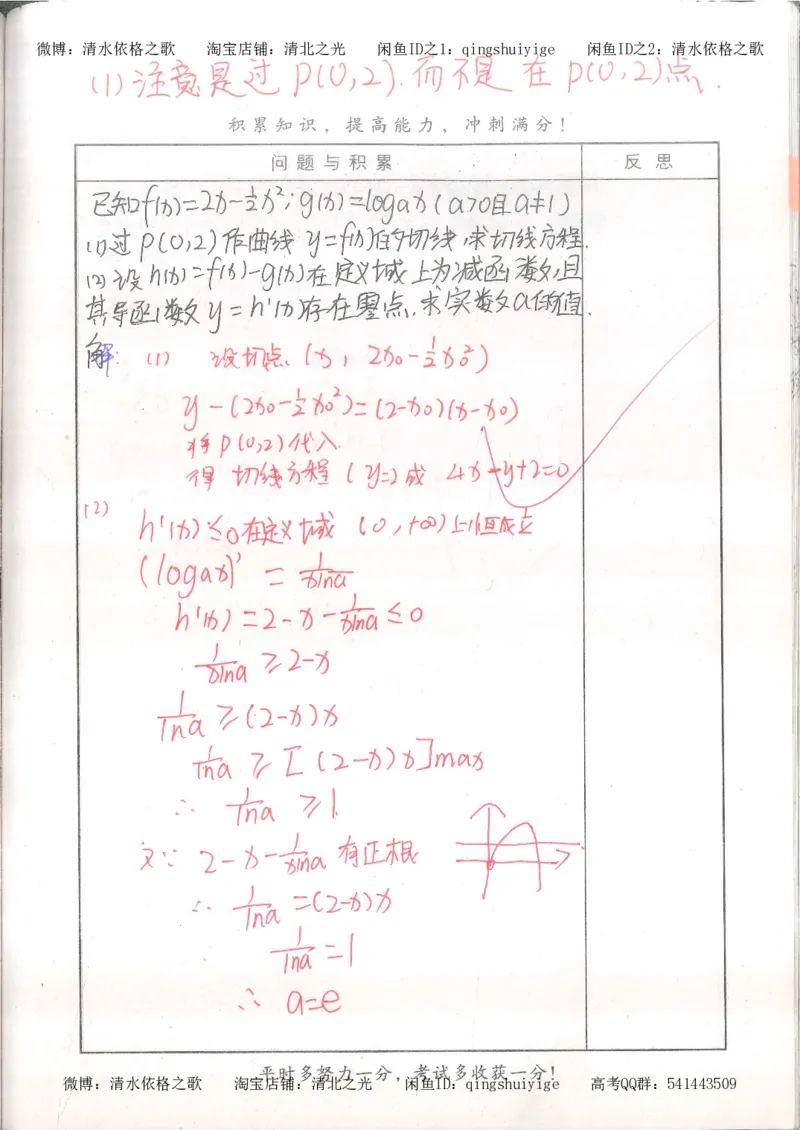 微博：清水依格之歌 淘宝店铺：清北之光 闲鱼ID之1：qingshuiyige 闲鱼ID之2：清水依格之歌
(1) 注意是过 P(0,2). 而不是 在 P(0,2)点.
积累知识，提高能力，冲刺满分！
问题与积累 反思
已知f(x)=2x-½x²; g(x)=logax (a>0且a≠1)
(1)过P(0,2)作曲线 y=f(x)的切线,求切线方程.
(2)设h(x)=f(x)-g(x)在定义域上为减函数,且
其导函数y=h'(x)存在零点,求实数a的值.
解: (1) 设切点 (x, 2x₀-½x₀²)
y-(2x₀-½x₀²)=(2-x₀)(x-x₀)
将P(0,2)代入
得 切线方程 (y=2)或 4x-y+2=0
(2)
h'(x)≤0在定义域 (0,+∞)上恒成立
(logax)' = 1/xlna
h'(x)=2-x-1/xlna≤0
1/xlna≥2-x
1/lna≥(2-x)x
1/lna≥[(2-x)x]max
∴ 1/lna≥1.
又∵ 2-x-1/xlna 有正根
∴ 1/lna=(2-x)x
1/lna=1
∴ a=e
平时多努力一分，考试多收获一分！
微博：清水依格之歌 淘宝店铺：清北之光 闲鱼ID：qingshuiyige 高考QQ群：541443509